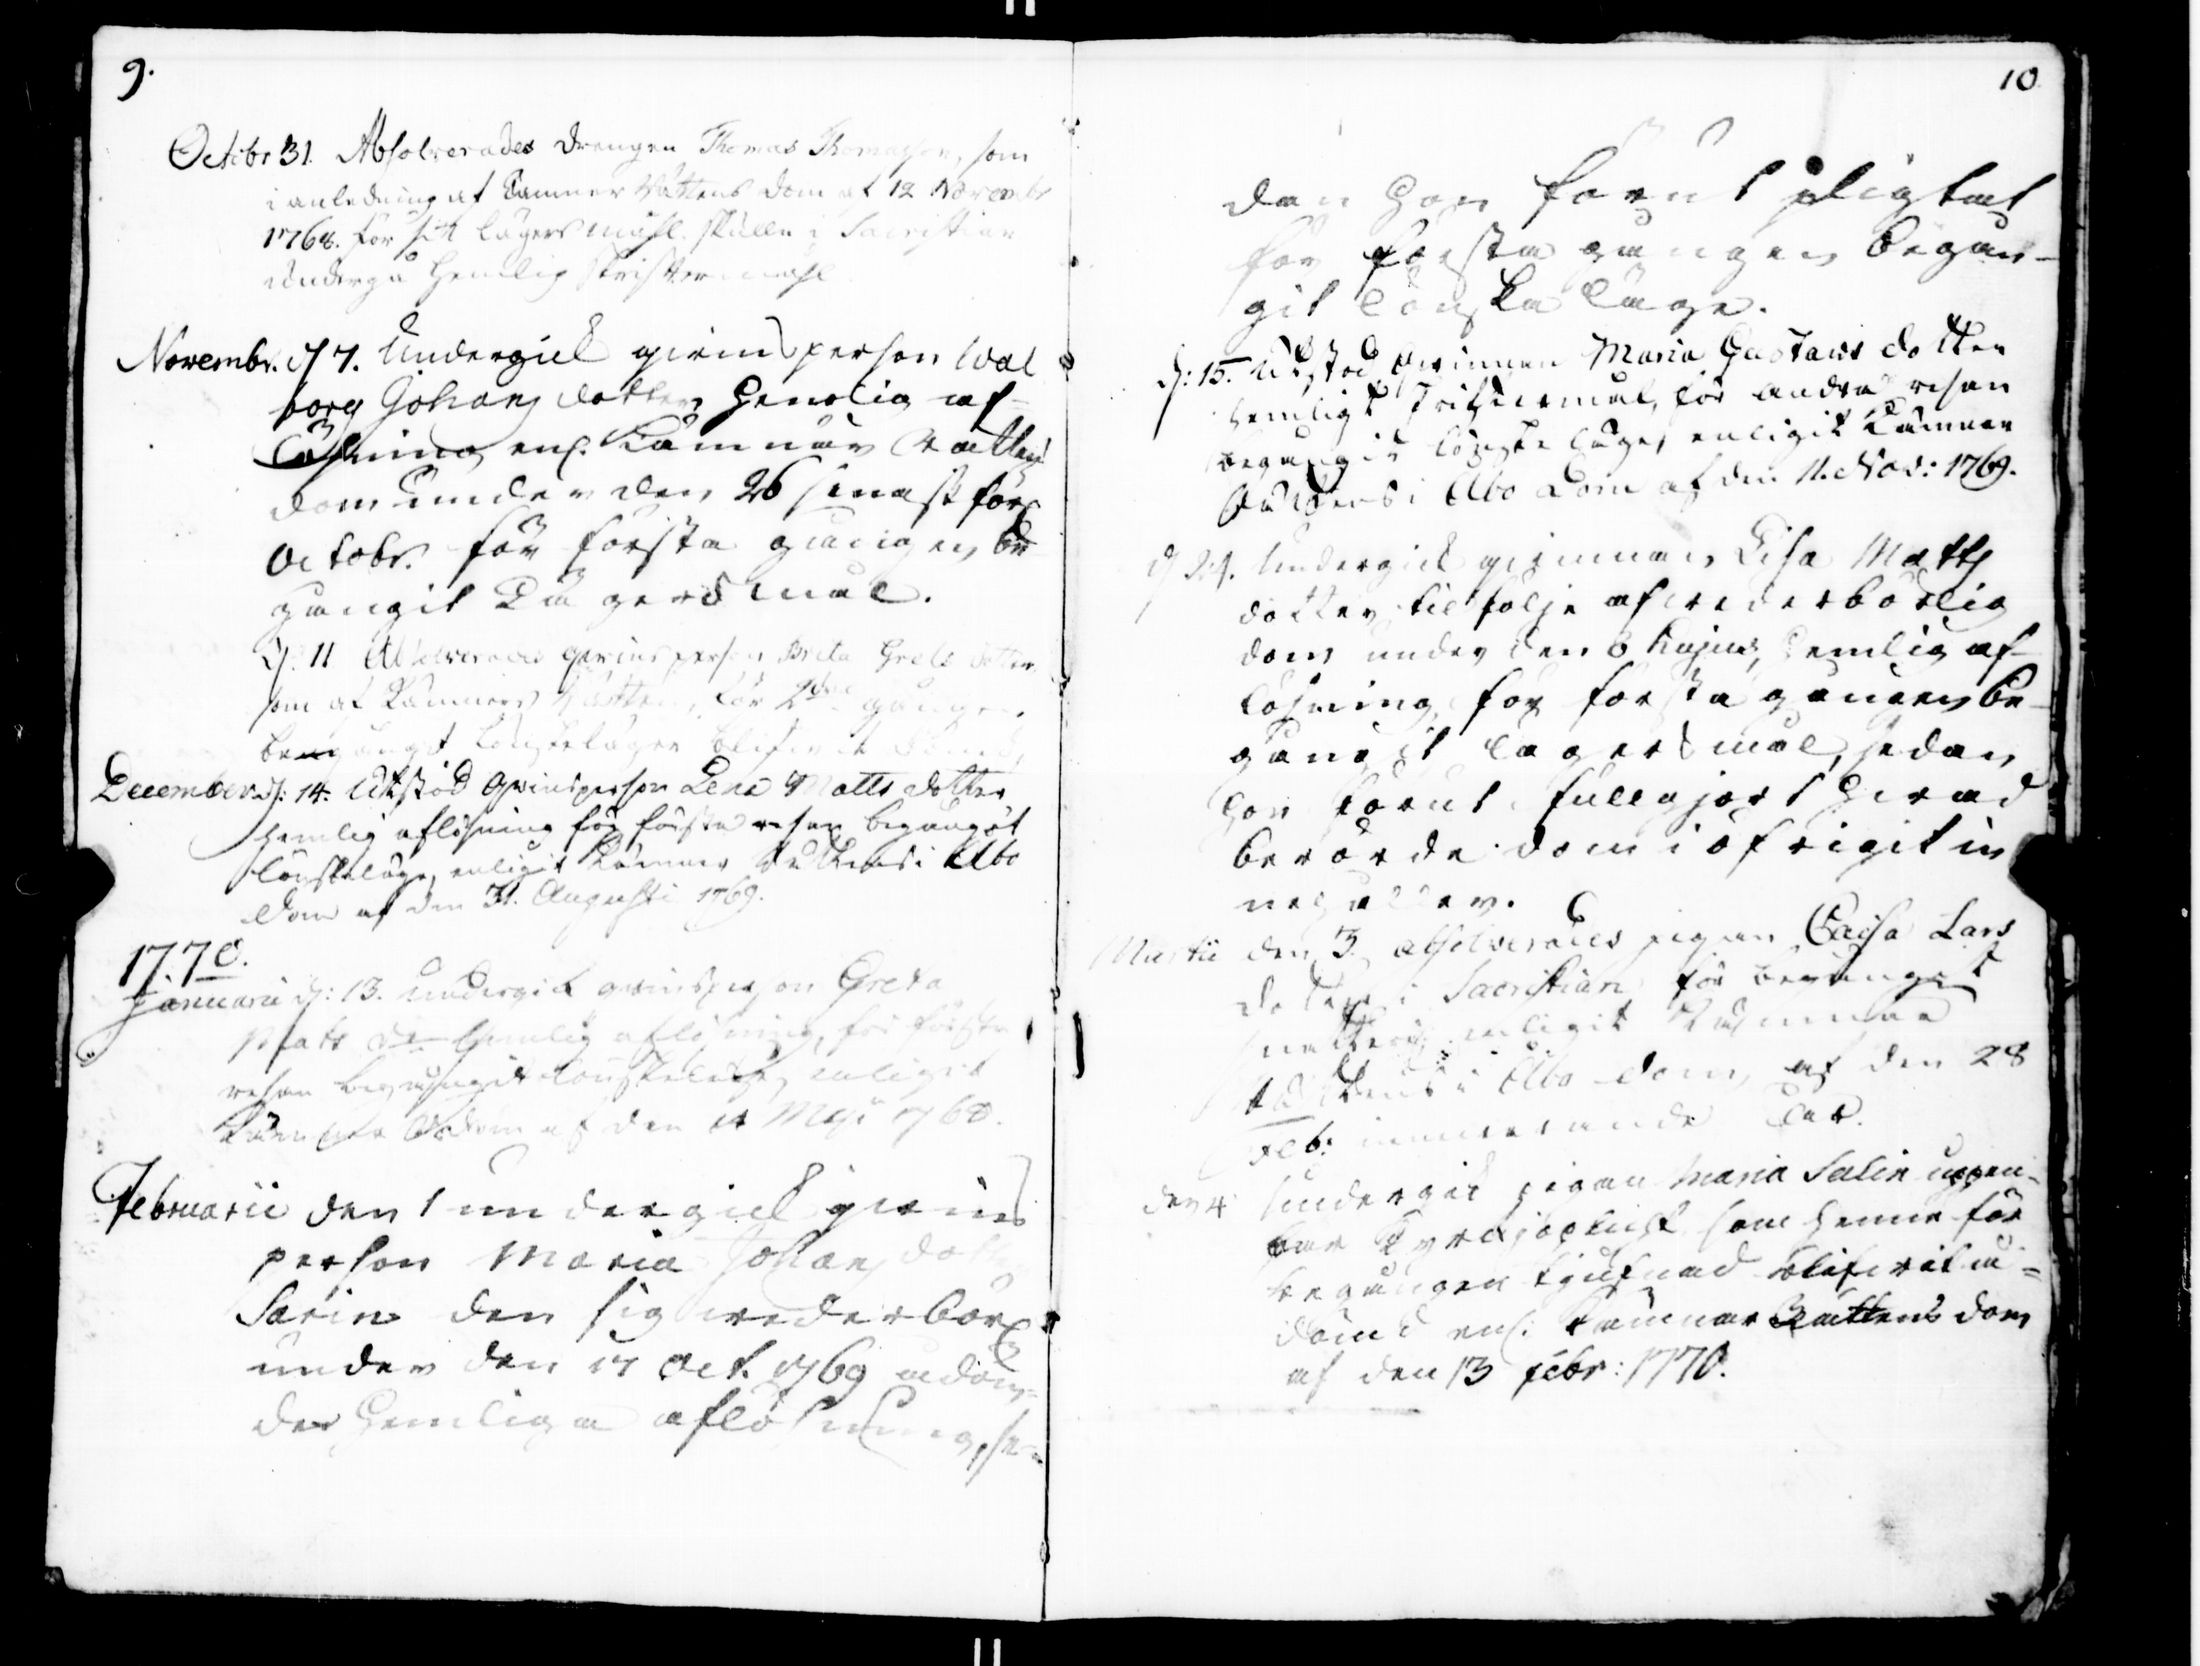 9.
Octobr 31. Absolverades Drengen Thomas Thomasson, som
i anledning af Kämner Rättens dom af 12 Novembr
1768. för sitt lägersmåhl skulle i Sacristian
undergå hemlig skriftermahl
Novembr. d 7. Undergick qvinsperson Wal
borg Johans dotter hemlig af-
lösning enl. Kämnärs Rättens
dom under den 26 sinastförl
Octobr. för första gången be
gångit Lägersmål.
d. 11 Absolverades qvinsperson Brita Grels dotter
som af Kämners Rätten, för 2dra gången
begångit lönskeläger blifvit dömd
December d: 14. Utstod qvinsperson Lena Matts dotter
hemlig aflösning för första resan begångit
lönskeläge, enligit Kämner Rättens i Åbo
dom af den 31. Augusti 1769.
1770.
Januarii d: 13. undergick qvinsperson Greta
Mats dr hemlig aflösning, för första
resan begångit lönskeläge, enligit
Kämner Rdom af den Maji 1768.
Februarii den 1 undergick qvins
person Maria Johans dotter
Sarin den sig wederbörl
under den 17 Oct. 1769 ådöm-
de hemliga aflösning, se-
10
dan hon förut pligtat
för första gången begån-
git Lönska läge.
d: 15. Utstod Qvinnan Maria Gustavs dotter
hemligt skriftermål, för andra resan
begångit lönskeläge, enligit Kämner
Rättens i Åbo Dom af den 11. Nov: 1769.
d 24. Undergick qvinnan Lisa Matts
dotter til följe af wederbörlig
dom under den 6 hujus, hemlig af-
lösning, för första gången be-
gångit lägersmål, sedan
hon förut fullgjort hvad
berörde dom i öfrigit in
nehåller.
Martii den 3. absolverades pigan Caisa Lars
dotter i Sacristian för begångit
snatteri enligit Kämner
Rättens i Åbo dom, af den 28
Feb: innevarande år.
den 4 undergick pigan Maria Salin uppen-
bar Kyrkioplickt som henne för
begången tjufnad blifvit å-
dömd enl: Kämnar Rättens dom
af den 13 Febr: 1770.